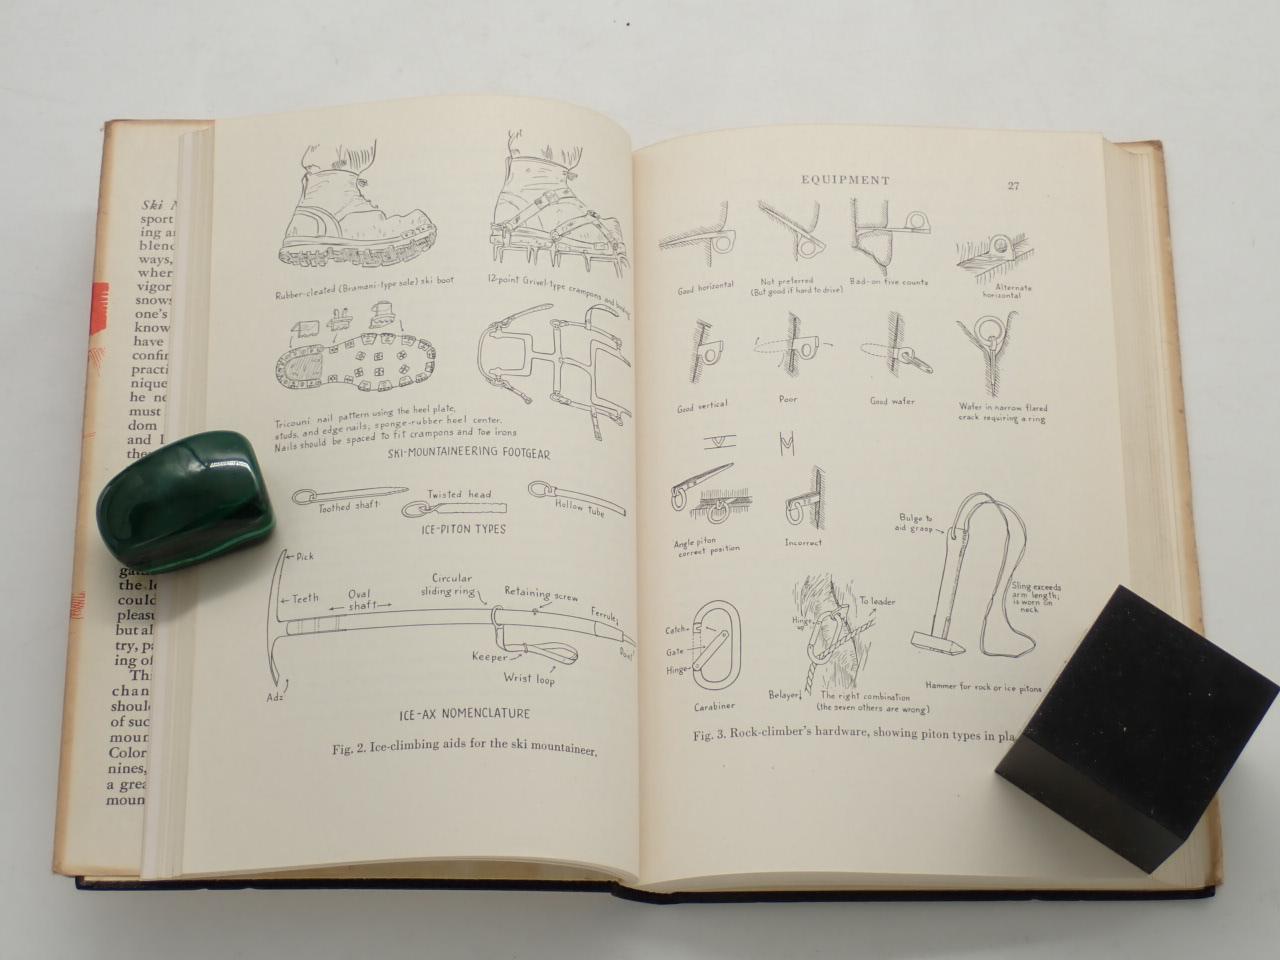 Ski
sport
ing
blend
ways,
wher
vigor
snows
one's
know
have
confir
practi
nique
he ne
must
dom
and I
the
the le
could
pleasu
but al
try, pa
ing of
Th
chan
shoul
of suc
moun
Color
nines,
a grea
moun
Rubber-cleated (Bramani-type sole) ski boot
12-point Grivel-type crampons and binding
Tricouni nail pattern using the heel plate,
studs, and edge nails; sponge-rubber heel center.
Nails should be spaced to fit crampons and toe irons
SKI-MOUNTAINEERING FOOTGEAR
Toothed shaft
Twisted head
Hollow tube
ICE-PITON TYPES
Pick
Teeth
Oval
shaft
Circular
sliding ring
Retaining screw
Ferrule
Point
Keeper
Wrist loop
Adz
ICE-AX NOMENCLATURE
Fig. 2. Ice-climbing aids for the ski mountaineer.
EQUIPMENT
27
Good horizontal
Not preferred
(But good if hard to drive)
Bad-on five counts
Alternate
horizontal
Good vertical
Poor
Good wafer
Wafer in narrow flared
crack requiring a ring
Angle piton
correct position
Incorrect
Bulge to
aid grasp
Sling exceeds
arm length;
is worn on
neck
Hammer for rock or ice pitons
Catch
Gate
Hinge
Carabiner
Hinge
up
To leader
Belayer
The right combination
(the seven others are wrong)
Fig. 3. Rock-climber's hardware, showing piton types in pla